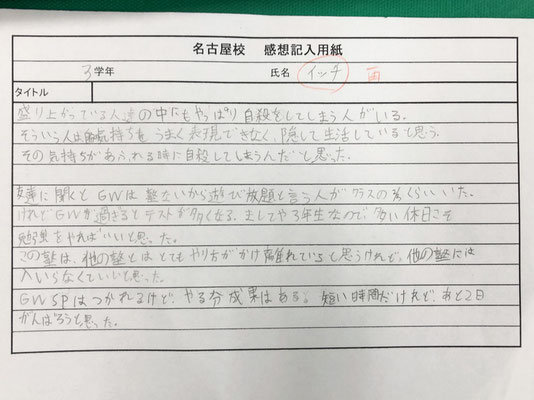 名古屋校 感想記入用紙
3学年 氏名 インチ
タイトル
盛り上がっている人達の中にもやっぱり自殺をしてしまう人がいる。
そういう人は気持ちをうまく表現できなく、隠して生活していると思う。
その気持ちがあふれる時に自殺してしまうんだと思った。
友達に聞くとGWは塾ないから遊び放題と言う人がクラスの多くらいいた。
けれどGWが過ぎるとテストが多くなる。ましてや3年生なので、多い休日こそ
勉強をやればいいと思った。
この塾は、他の塾とはとてもやり方がかけ離れていると思うけれど、他の塾には
入いらなくていいと思った。
GWSPはつかれるけど、やる分成果はある。短い時間だけれど、あと2日
がんばろうと思った。